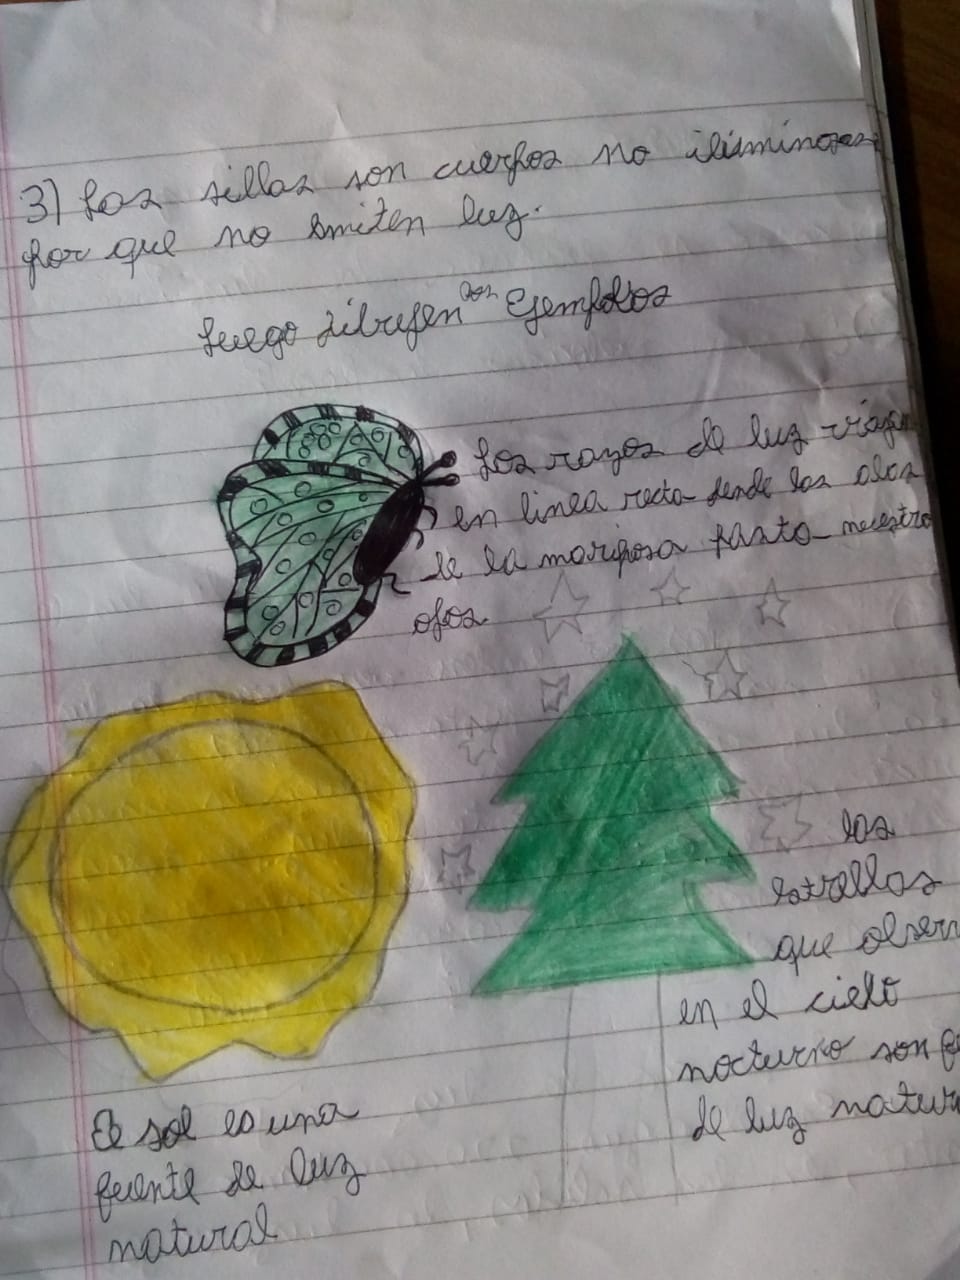 3) Las sillas son cuerpos no iluminosas
por que no emiten luz.
Luego dibujen dos Ejemplos
Los rayos de luz viajan
en linea recta desde las alas
de la mariposa hasta nuestro
ojos
las
estrellas
que observ
en el cielo
nocturno son fu
de luz natur
El sol es una
fuente de luz
natural